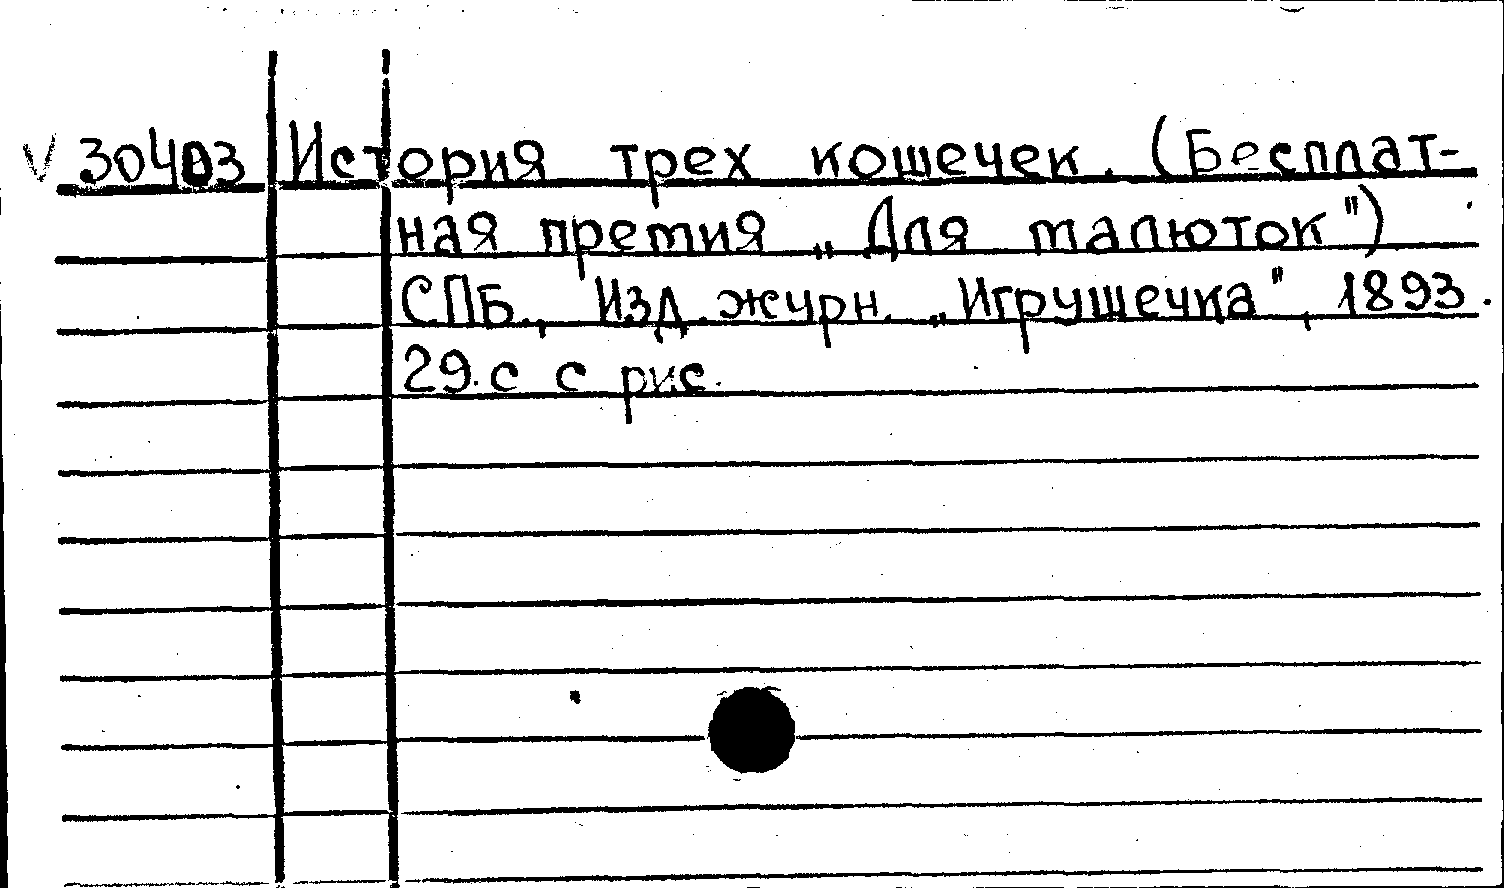 V 30403 История трех кошечек. (Бесплат-
ная премия „Для малюток")
СПБ., Изд. журн. „Игрушечка", 1893.
29.с с рис.